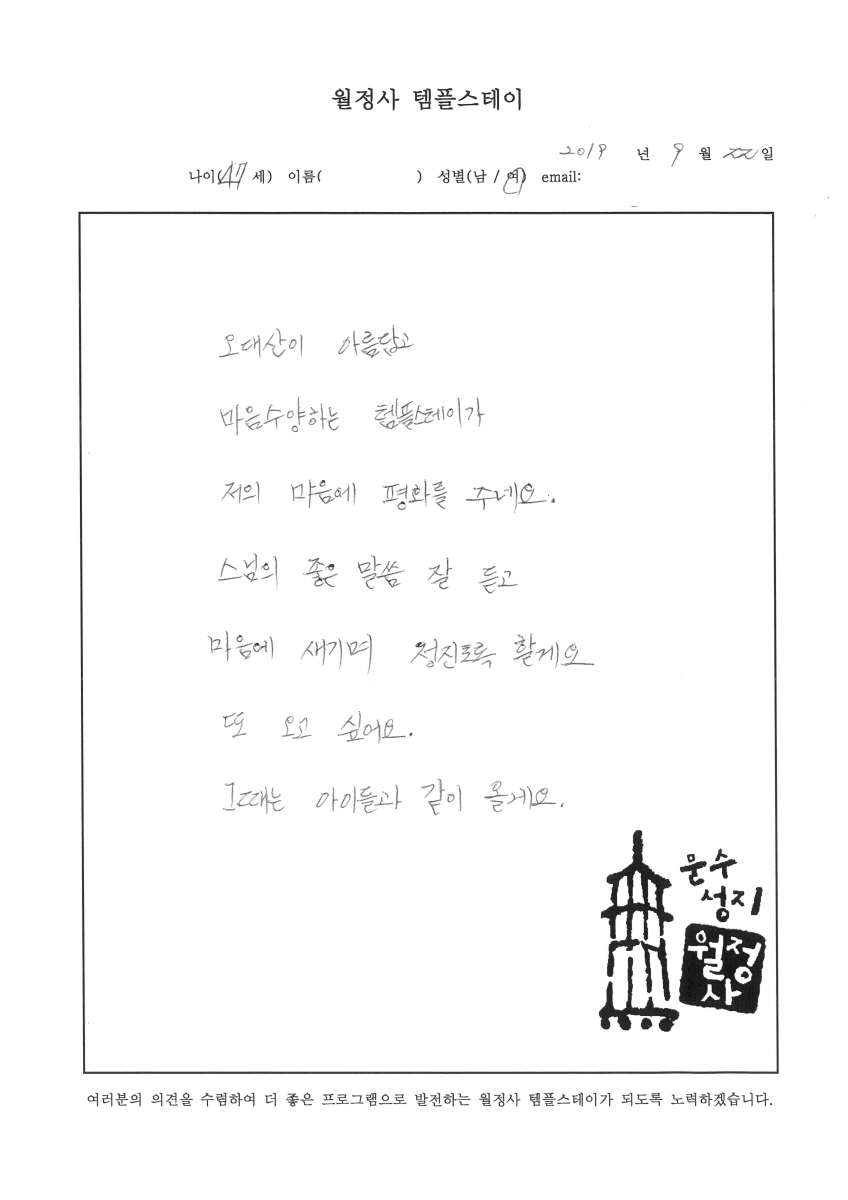 월정사 템플스테이
2019 년 9 월 22 일
나이(47 세) 이름( ) 성별(남 / 여) email:
오대산이 아름답고
마음수양하는 템플스테이가
저의 마음에 평화를 주네요.
스님의 좋은 말씀 잘 듣고
마음에 새기며 정진토록 할게요
또 오고 싶어요.
그때는 아이들과 같이 올게요.
문수
성지
월정
사
여러분의 의견을 수렴하여 더 좋은 프로그램으로 발전하는 월정사 템플스테이가 되도록 노력하겠습니다.